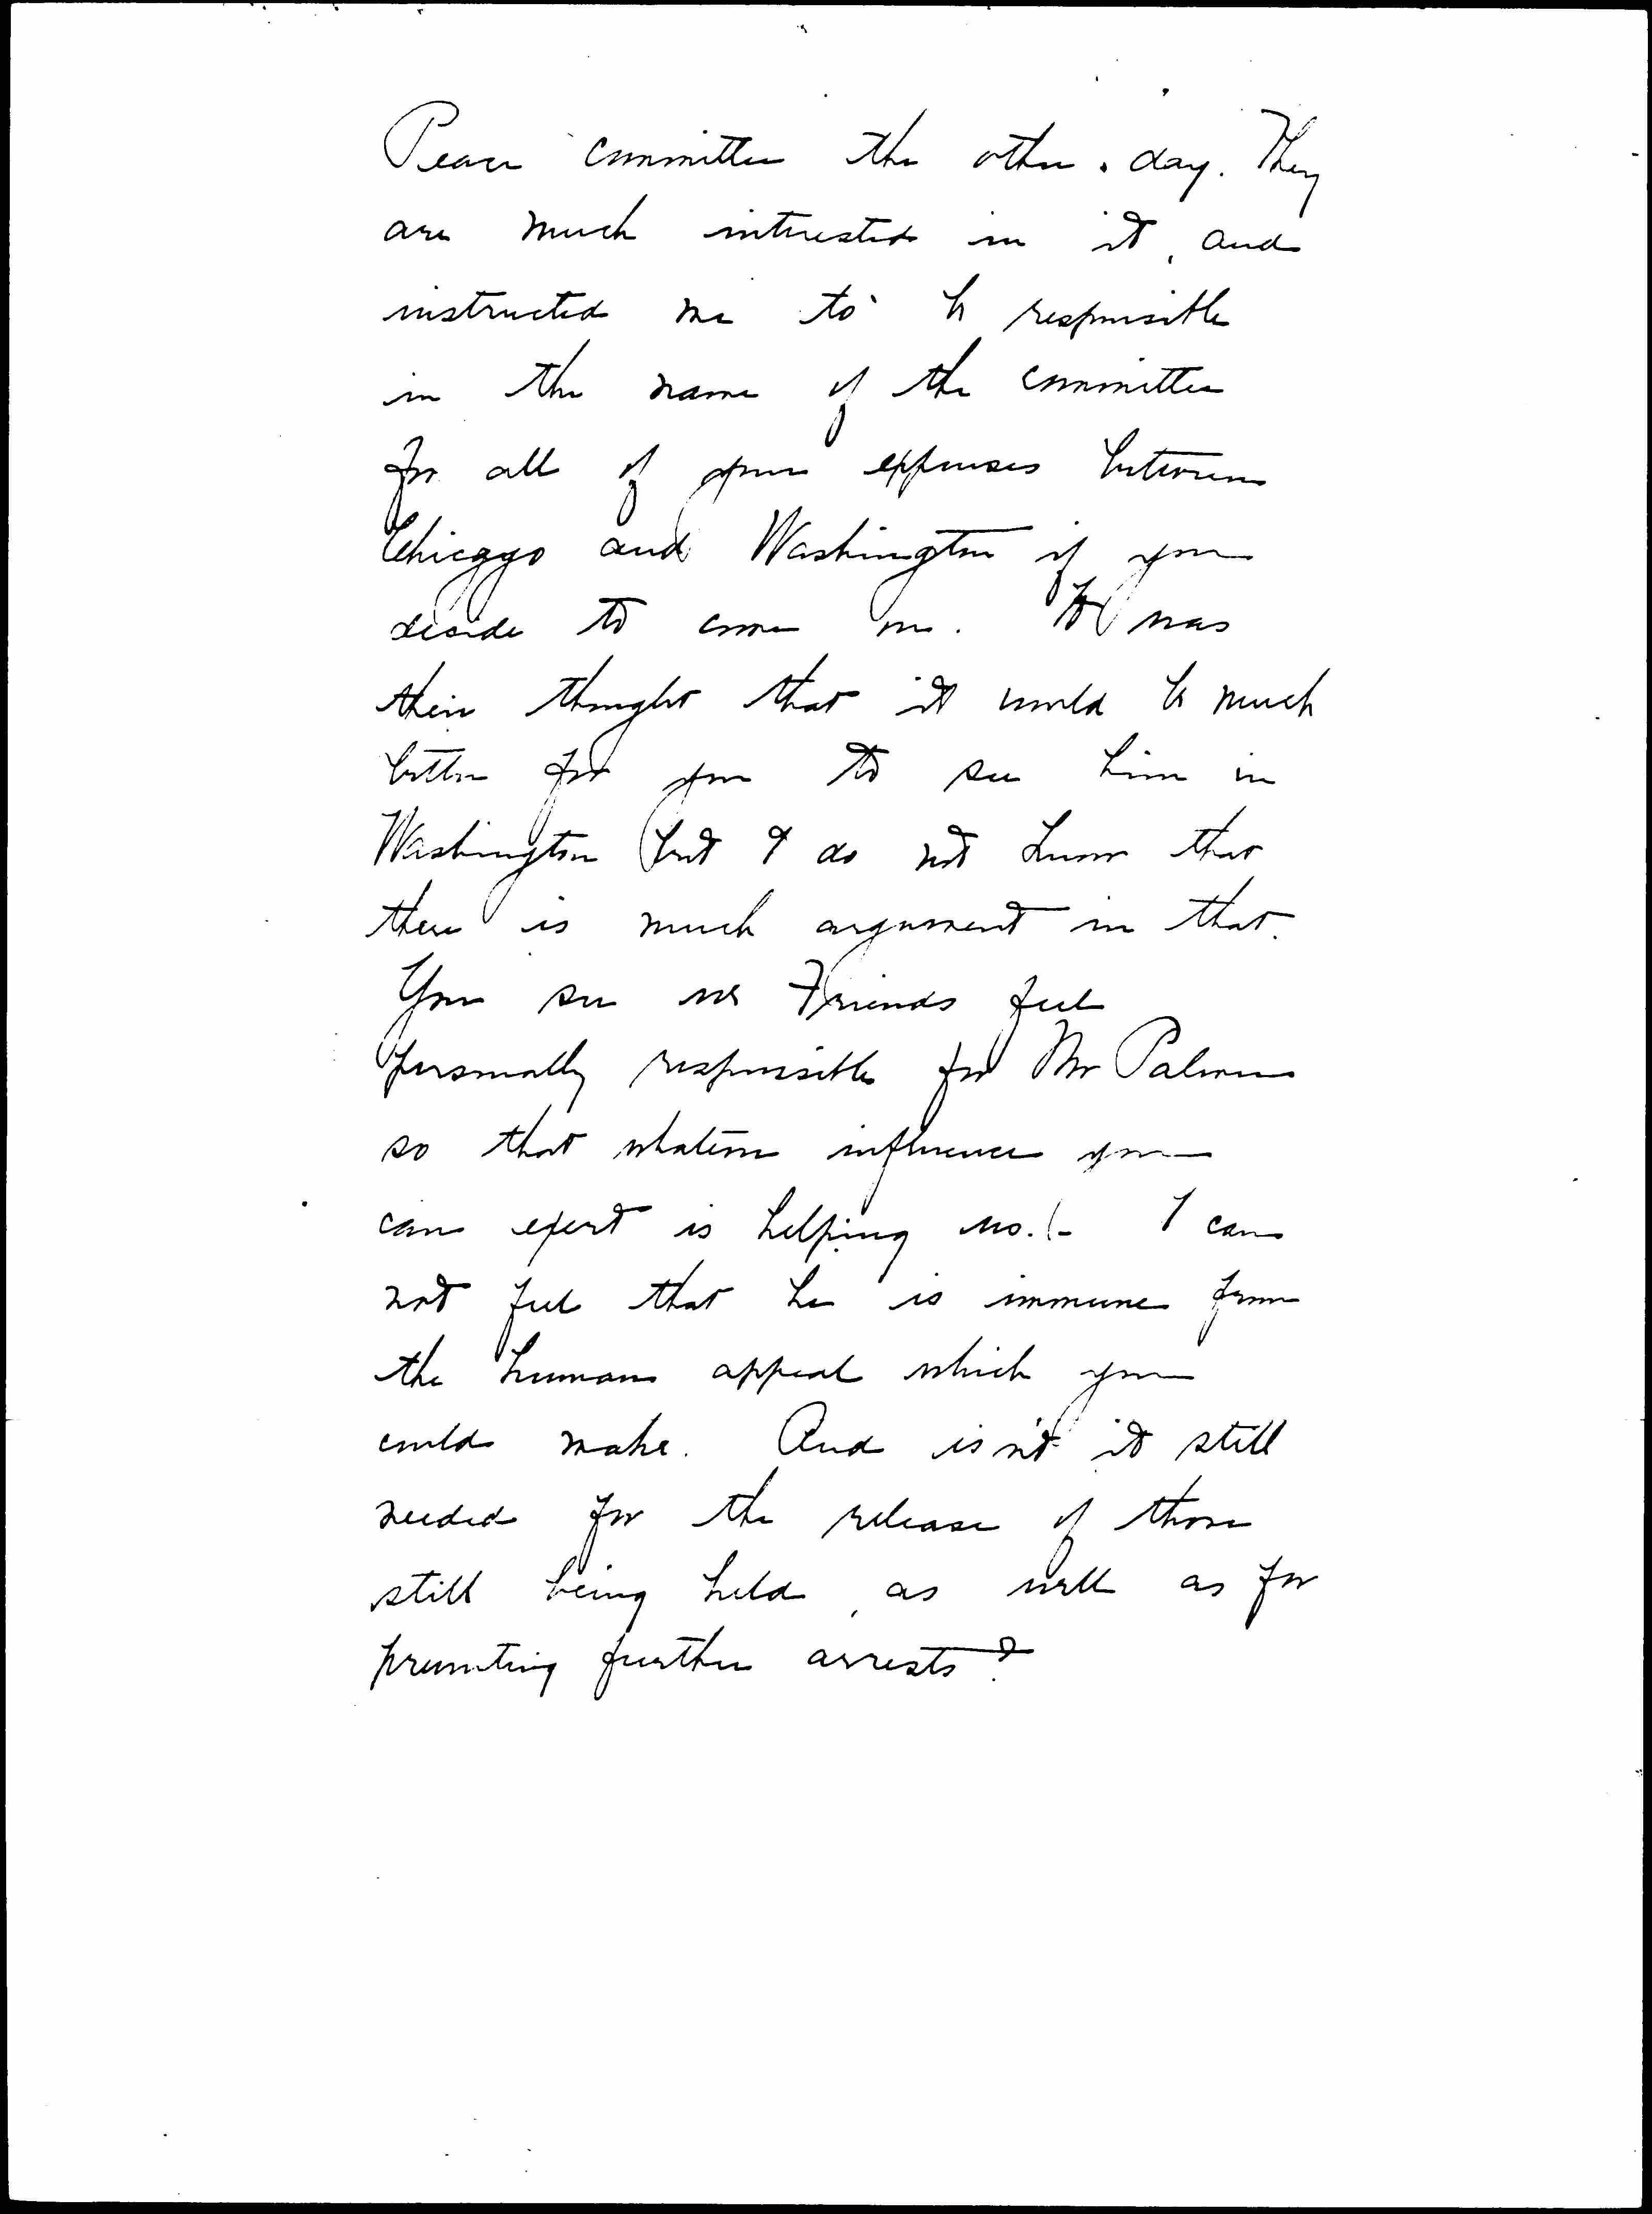 Peace committee the other day. They
are much interested in it, and
instructed me to be responsible
in the name of the committee
for all of your expenses between
Chicago and Washington if you
decide to come on. It was
their thought that it would be much
better for you to see him in
Washington but I do not know that
there is much argument in that.
You see we Friends feel
personally responsible for Mr Palmer
so that whatever influence you
can exert is helping us. I can
not feel that he is immune from
the human appeal which you
could make. And isn't it still
needed for the release of those
still being held, as well as for
preventing further arrests?